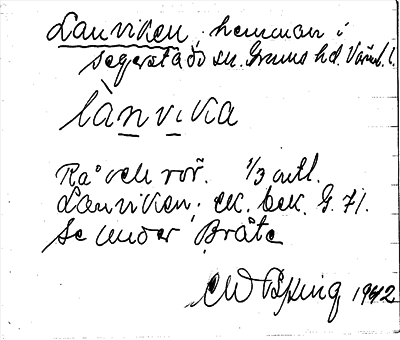 Lanviken, hemman i
Segerstads sn. Grums hd. Värml. l.
lànvika
Rå och rör. 1/3 mtl.
Lanviken, ek. bek. G. 71.
Se under Bråte
1942